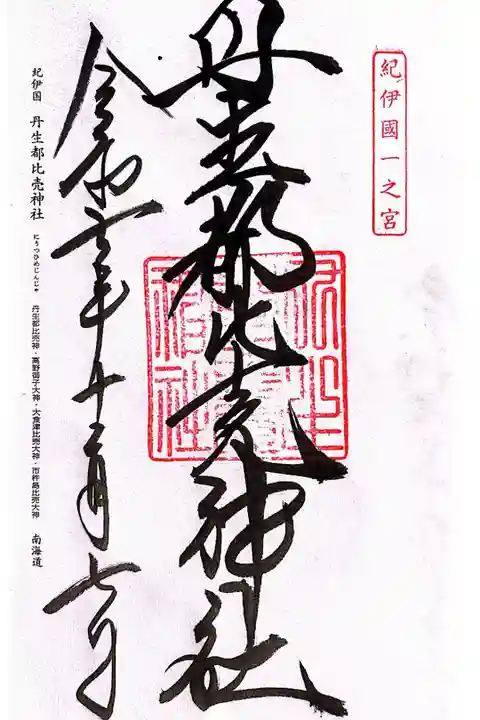 紀伊國一之宮
丹生都比売神社
令和元年十二月七日
紀伊国 丹生都比売神社 にうつひめじんじゃ 丹生都比売神・高野御子大神・大食津比売大神・市杵島比売大神 南海道